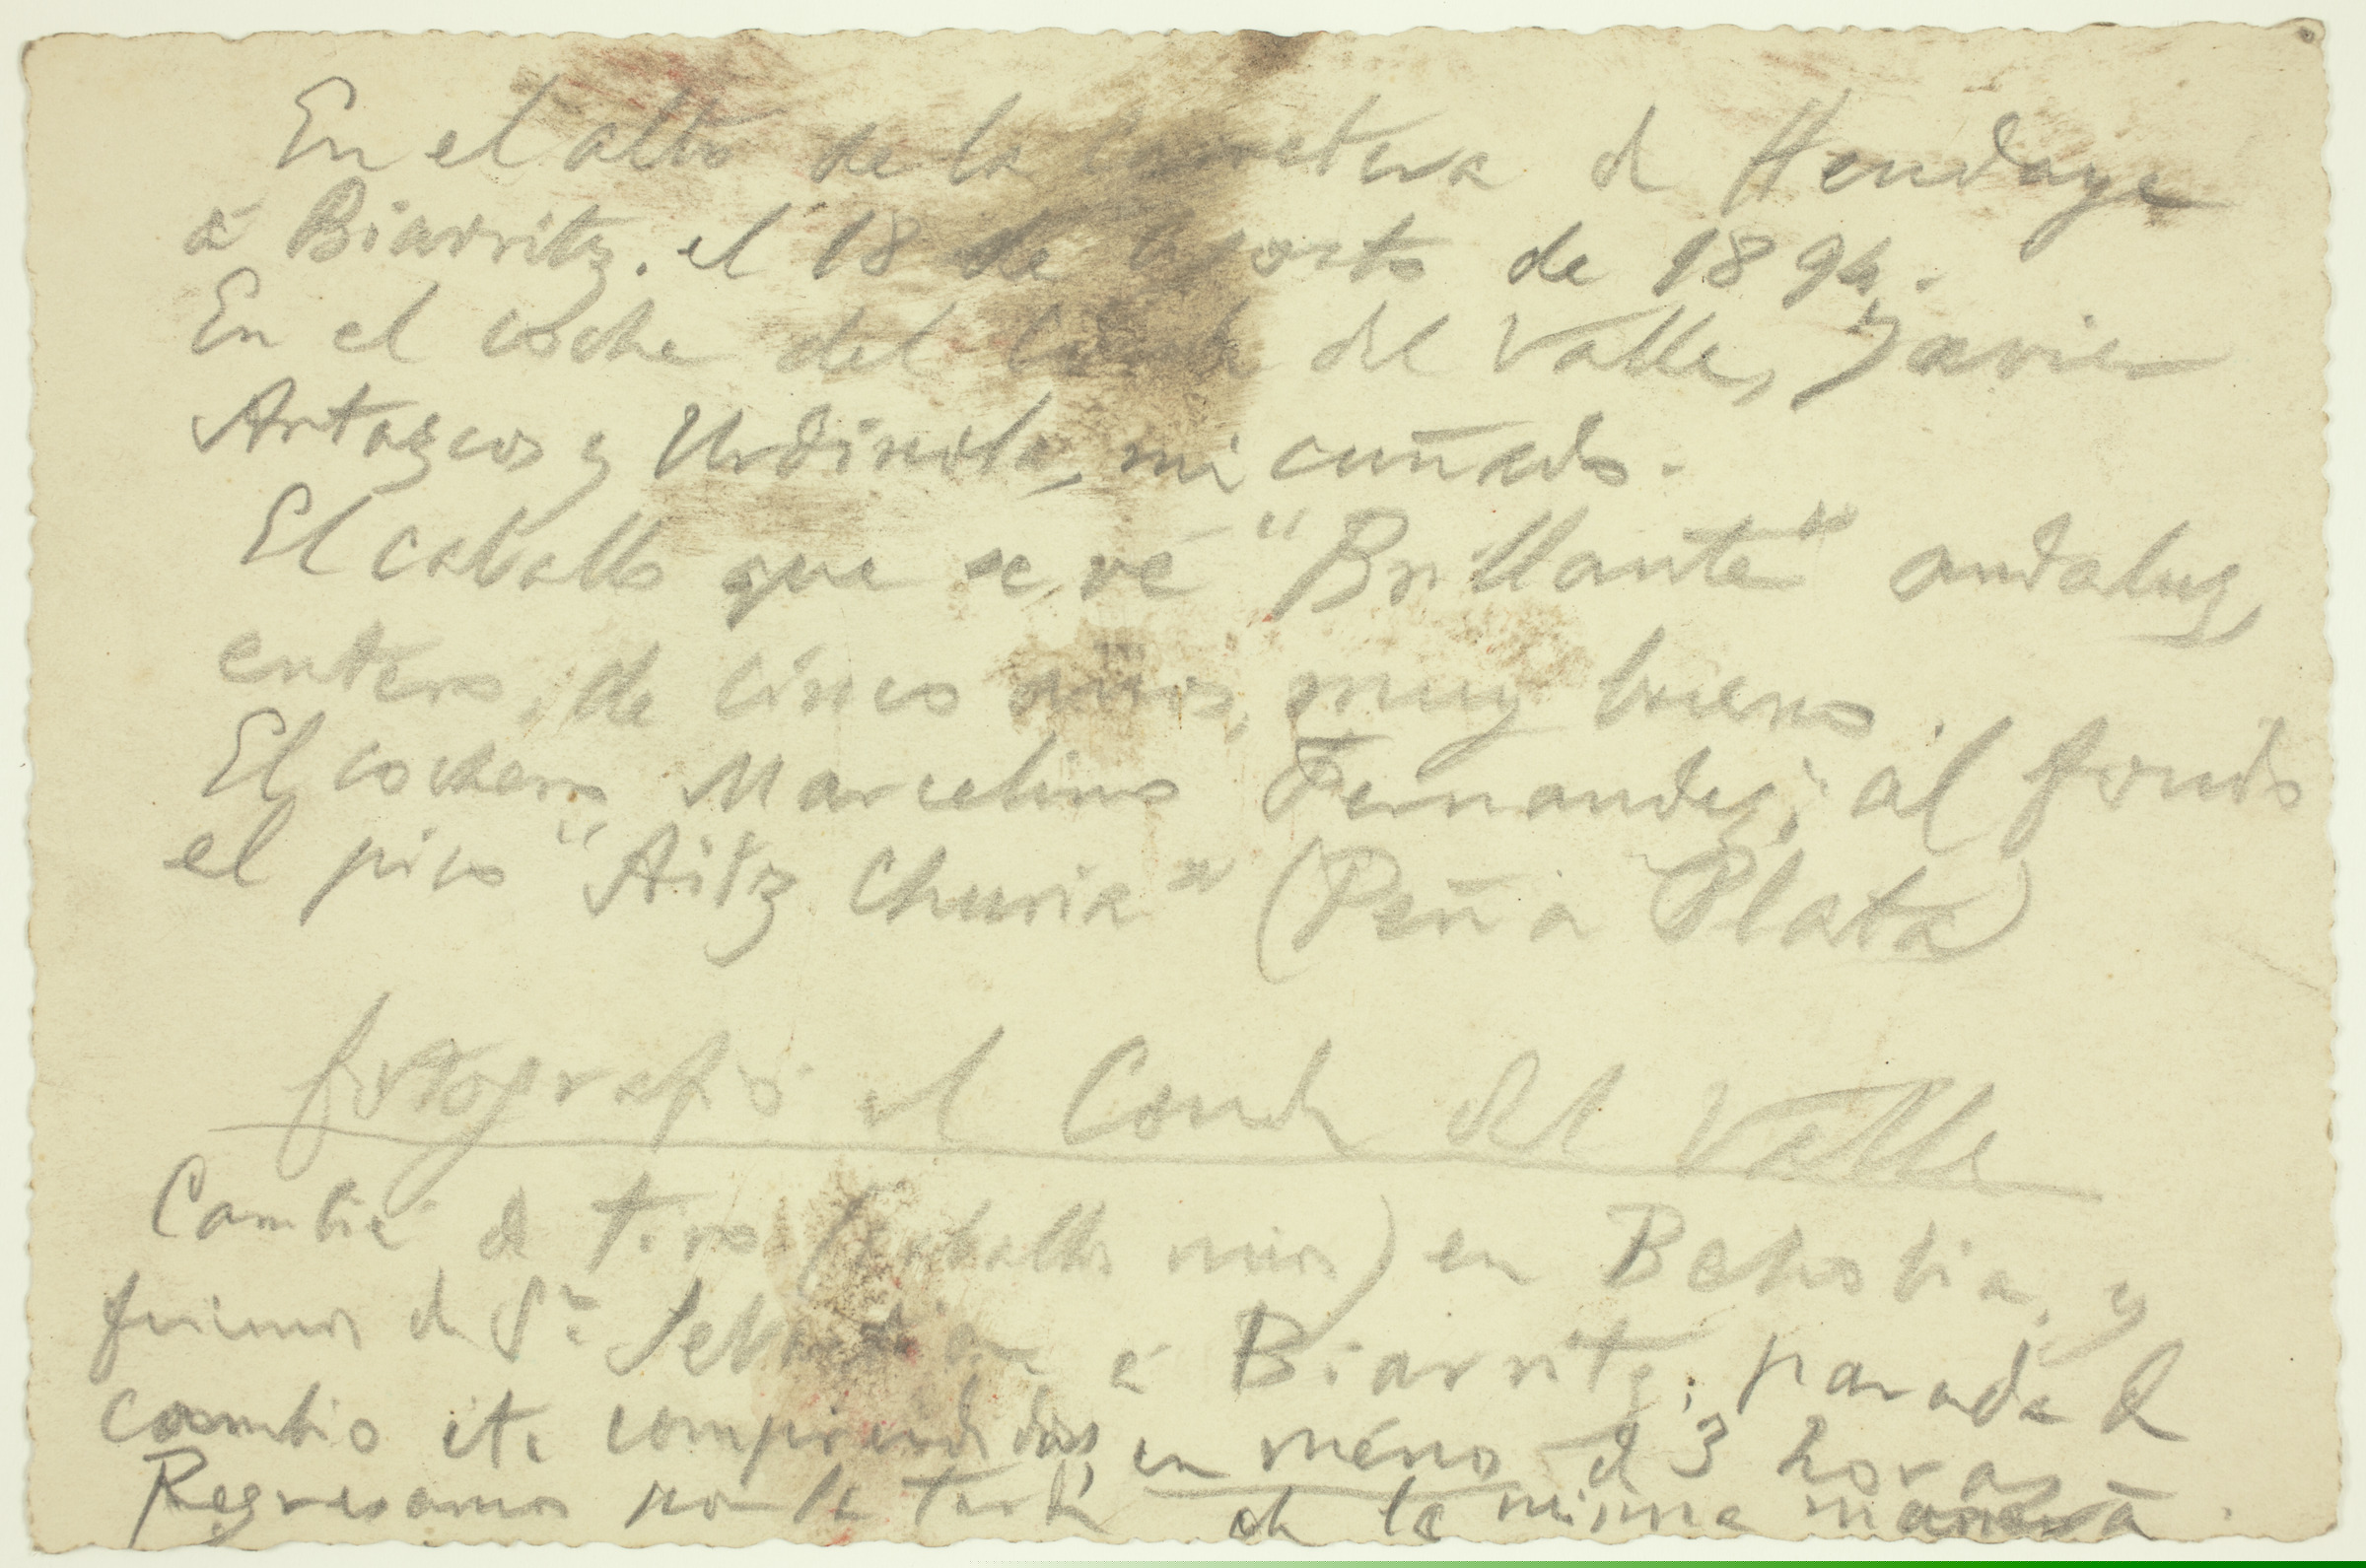 En el alto de la carretera de Hendaye
á Biarritz. el 18 de Agosto de 1894.
En el coche del Conde del Valle, Javier
Artazcos y Urdinola, mi cuñado.
El caballo que se vé "Brillante" andaluz,
entero, de cinco años, muy bueno.
El cochero, Marcelino Fernandez; al fondo
el pico "Aitz Churia" (Peña Plata)
fotografió el Conde del Valle
Cambié de tiro (caballos mios) en Behobia, y
fuimos de Sn Sebastian á Biarritz; parada de
cambio etc comprendidas, en ménos de 3 horas
Regresamos por la tarde de la misma manera.